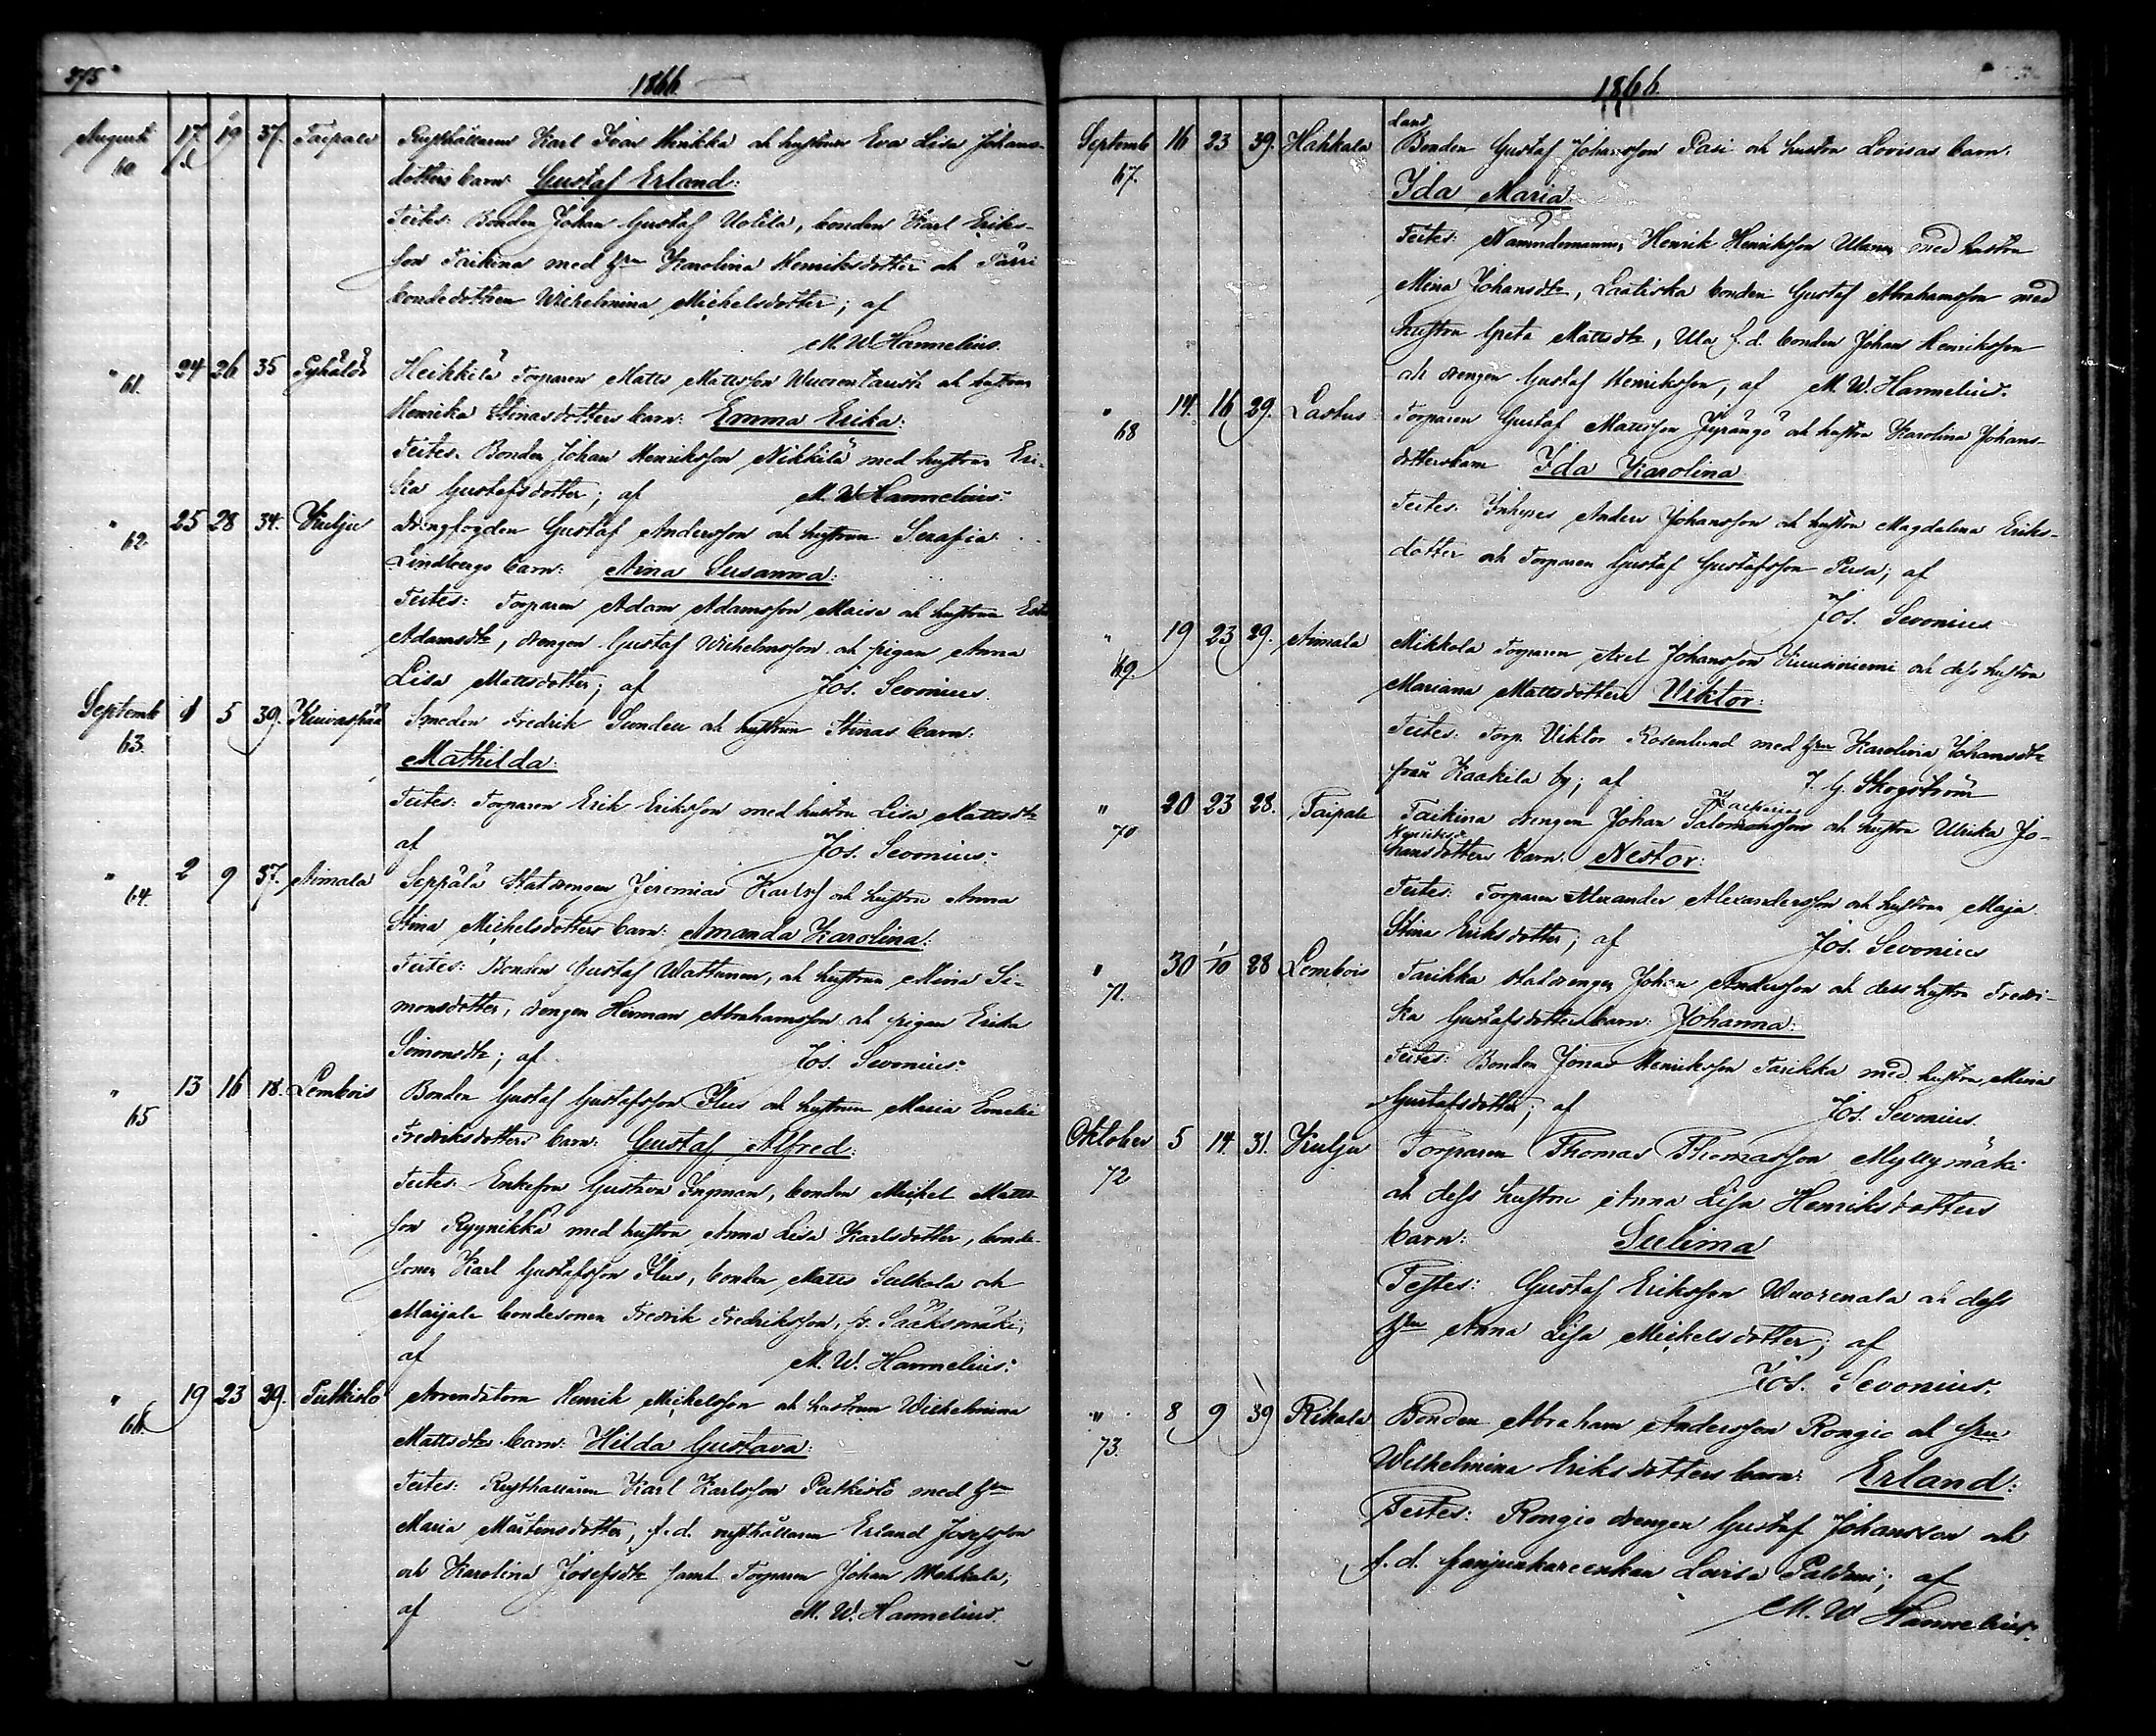 275
1866.
Augusti 17. 19 37. Taipale Rusthållaren Karl Ivar Henikka och hustrun Eva Lisa Johans-
60 dotters barn: Gustaf Erland:
Testes: Bonden Johan Gustaf Uotila, bonden Karl Eriks-
son Taikina med Hru Karolina Henriksdotter och Pärri
bondedottren Wilhelmina Michelsdotter; af
M. W. Hannelius.
" 24 26 35 Heikkilä Torparen Matts Mattsson Wuorentausti och hustrun
61. Henrika Stinasdotters barn: Emma Erika:
Testes. Bonden Johan Henriksson Nikkilä med hustrun Eri-
ka Gustafsdotter; af M. W. Hannelius.
" 25 28 34. Kulju Drängfogden Gustaf Andersson och hustrun Serafia
62. Lindbergs barn: Aina Susanna:
Testes: Torparen Adam Adamsson Maise och hustrun
Adamsdtr, drengen Gustaf Wilhelmsson och pigan Anna
Lisa Mattsdotter; af Jos. Sevonius.
Septemb 1 5 39. Kuivaspää Smeden Fredrik Sundell och hustrun Stinas barn:
63. Mathilda:
Testes: Torparen Erik Eriksson med hustru Lisa Mattsdtr
af Jos. Sevonius.
" 2 9 37. Aimala Seppälä Statdrengen Jeremias Karlss och hustru Anna
64. Stina Michelsdotters barn: Amanda Karolina:
Testes: Bonden Gustaf Wattunen, och hustrun Miina Si-
monsdotter, drengen Herman Abrahamsson och pigan Erika
Simonsdtr; af Jos. Sevonius.
" 13 16 18. Lembois Bonden Gustaf Gustafsson Klus och hustrun Maria Emelie
65 Fredriksdotters barn: Gustaf Alfred:
Testes: Enkefru Gustava Ingman, bonden Michel Matts-
son Ryynikkä med hustru Anna Lisa Karlsdotter, bonde-
sonen Karl Gustafsson Klus, bonden Matts Sulkola och
Maijala bondesonen Fredrik Fredriksson, fr. Sääksmäki,
af M. W. Hannelius.
" 19 23 29. Putkisto Arrendatorn Henrik Michelsson och hustrun Wilhelmina
66. Mattsdtrs barn: Hilda Gustava:
Testes: Rusthållaren Karl Karlsson Putkisto med Hru
Maria Mårtensdotter, f.d. rusthållaren Erland Josefsson
och Karolina Josefsdtr samt Torparen Johan Mahkala,
af M. W. Hannelius.
1866.
Septemb 16 23 39. Hahkala Land
67. Bonden Gustaf Johansson Pasi och hustru Lovisas barn:
Ida Maria:
Testes: Nämndemannen Henrik Henriksson Ulanen med hustru
Mina Johansdtr, Laatiska bonden Gustaf Abrahamsson med
hustru Greta Mattsdtr, Ula f.d. bonden Johan Henriksson
och drengen Gustaf Henriksson, af M. W. Hannelius.
" 14. 16 29. Lastus Torparen Gustaf Mattsson Jyrängö och hustru Karolina Johans-
68 dottersbarn Ida Karolina
Testes. Inhyses Anders Johansson och hustru Magdalena Eriks-
dotter och Torparen Gustaf Gustafsson Pusa; af
Jos. Sevonius
" 19 23 29. Aimala Mikkola Torparen Axel Johansson Kuusiniemi och dess hustru
69. Mariana Mattsdotters Viktor:
Testes: Torp. Viktor Rosenlund med Hru Karolina Johansdtr
från Kaakila by; af J. G. Skogström
" 20 23 28. Taipale Taikina drengen Johan Salomonsson och hustru Ulrika Jo-
70 Henriksd
hansdotters barn: Nestor:
Testes: Torparen Alexander Alexandersson och hustrun Maja
Stina Eriksdotter; af Jos. Sevonius
" 30 1/10 28 Lembois Tarikka statdrengen Johan Andersson och dess hustru Fredri-
71. ka Gustafsdotters barn: Johanna:
Testes: Bonden Jonas Henriksson Tarikka med hustru Miina
Gustafsdotter; af Jos. Sevonius.
Oktober 5 14. 31. Kulju Torparen Thomas Thomasson Myllymäki
72 och dess hustru Anna Lisa Henriksdotters
barn: Sulima
Testes: Gustaf Eriksson Wuorenala och dess
Hru Anna Lisa Michelsdotter; af
Jos. Sevonius.
" 8 9 39 Rikala Bonden Abraham Andersson Rongio och Hru
73. Wilhelmina Eriksdotters barn: Erland:
Testes: Rongio drengen Gustaf Johansson och
f.d. fanjunkareenkan Lovisa Paldani; af
M. W. Hannelius.